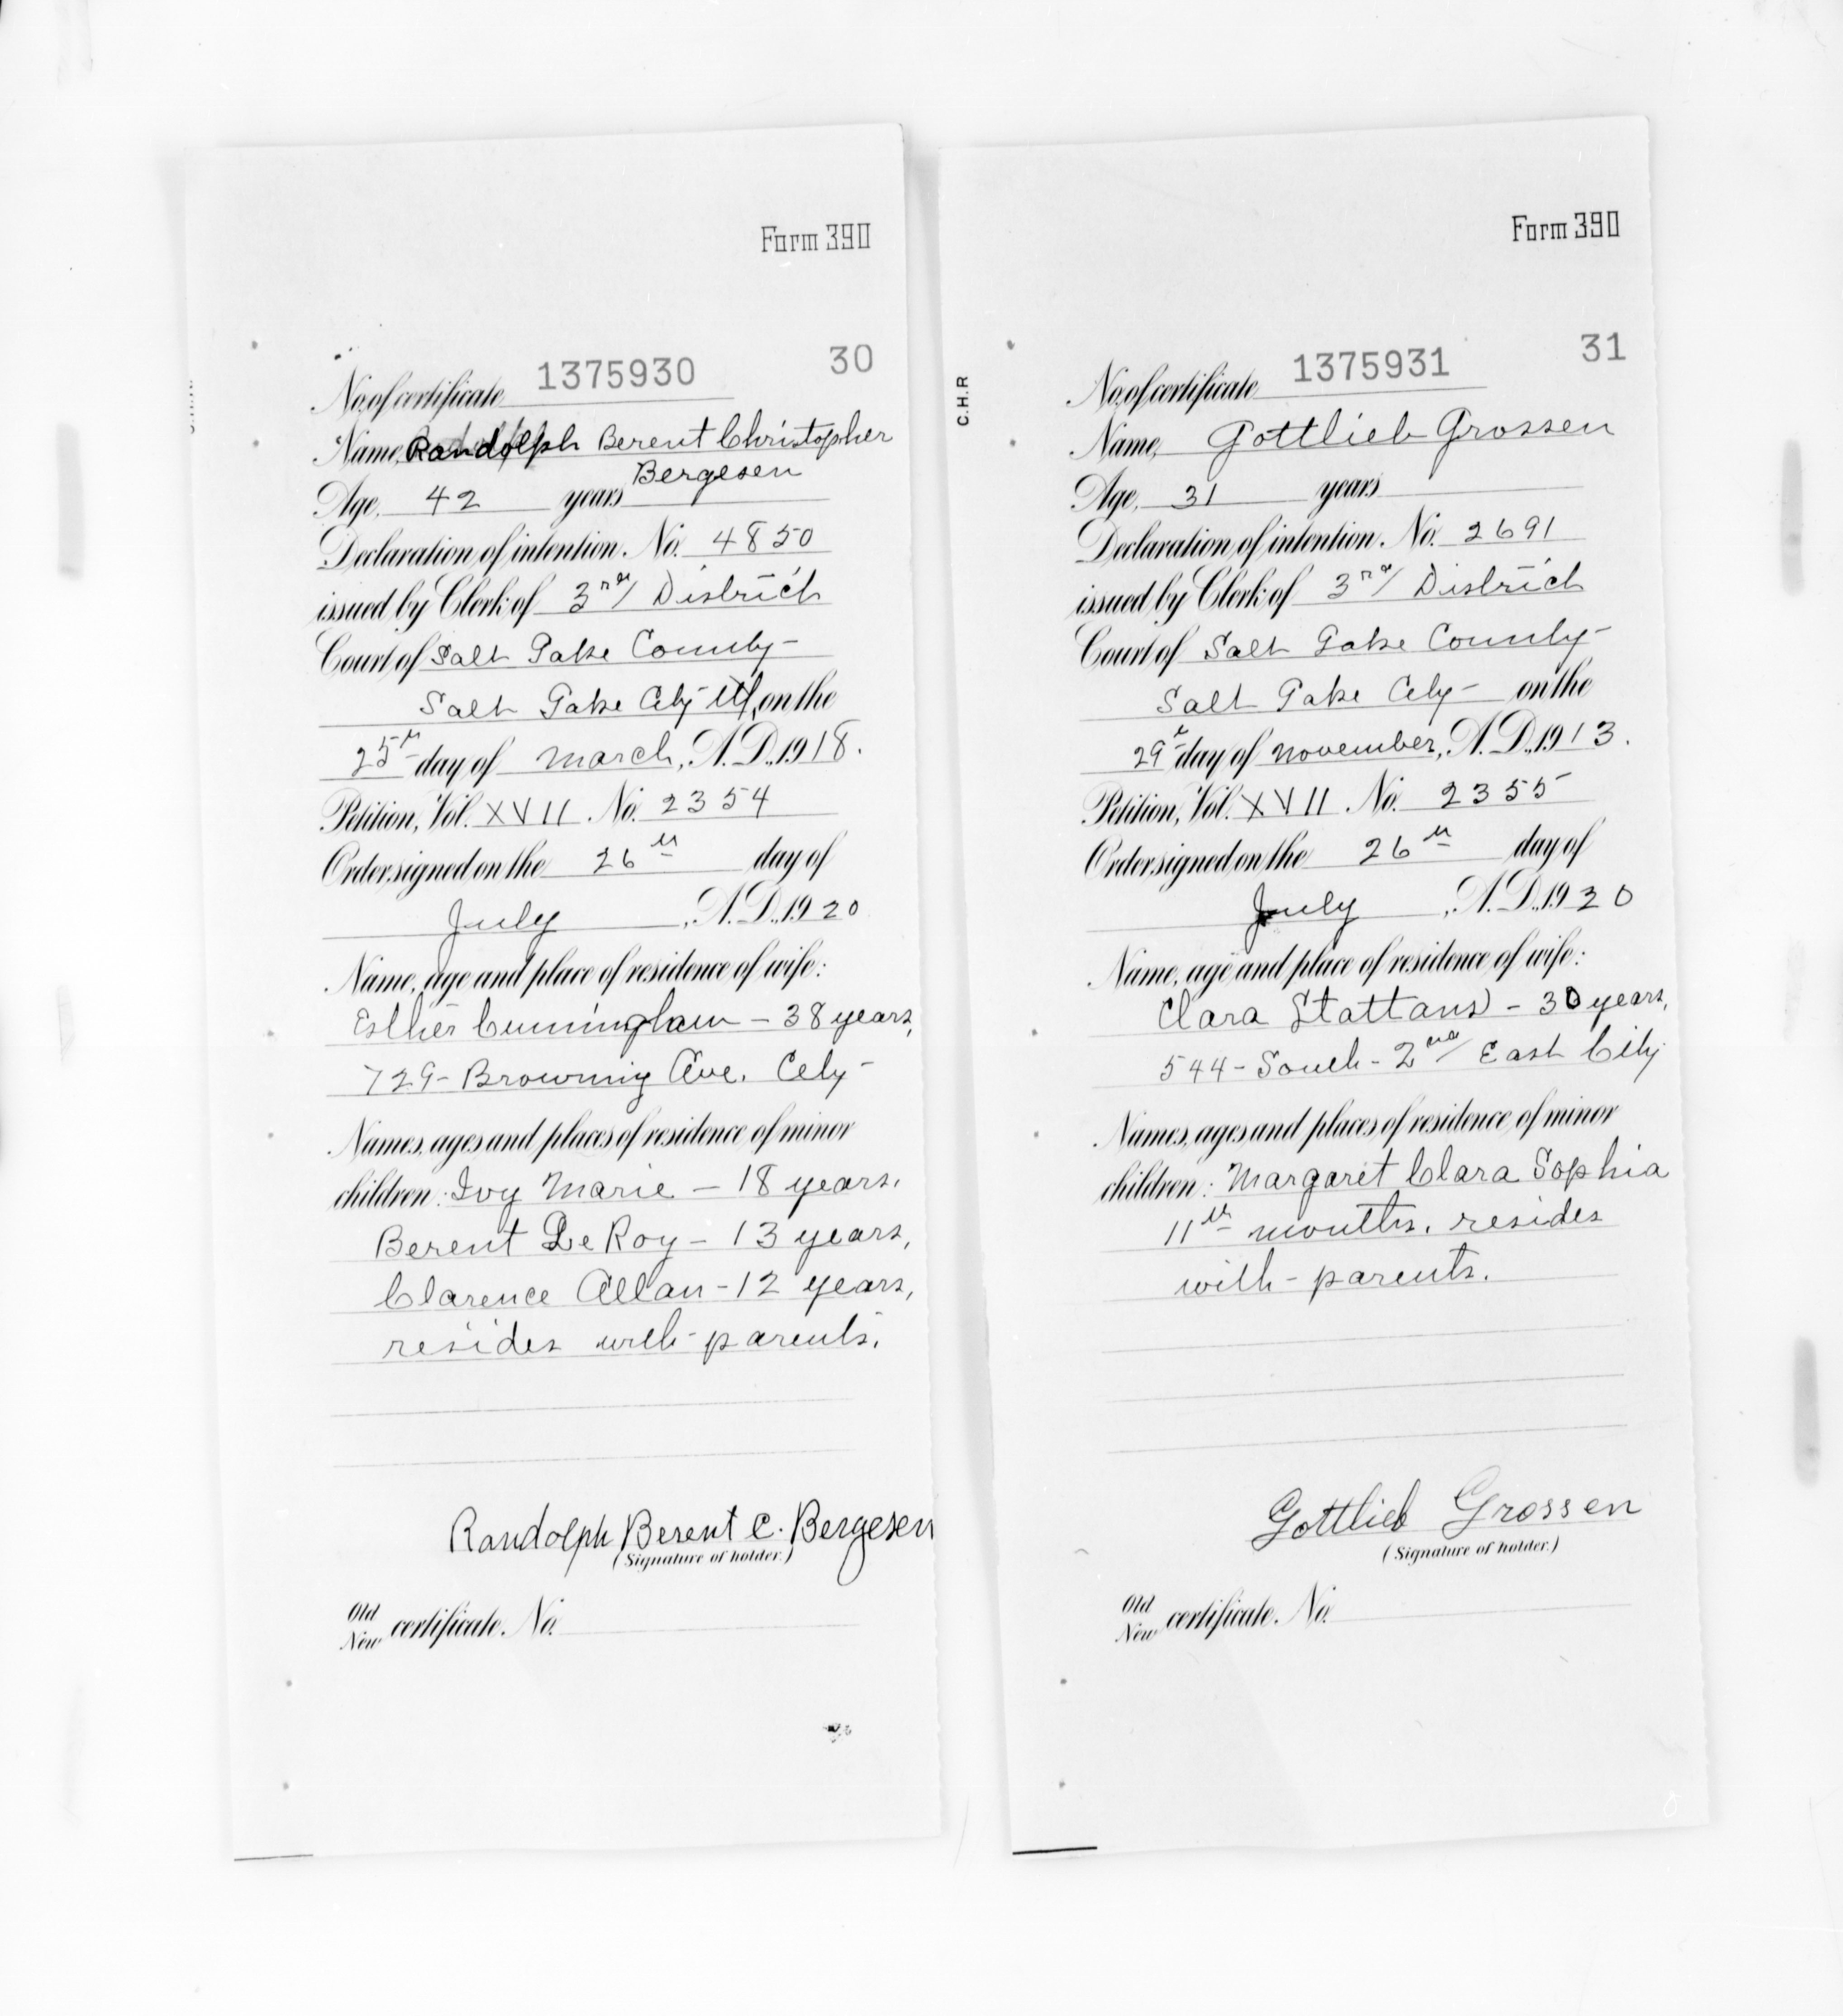 Form 390
30
No. of certificate 1375930
Name, Randolph Berent Christopher
Bergesen
Age, 42 years
Declaration of intention. No. 4850
issued by Clerk of 3rd District
Court of Salt Lake County
Salt Lake City Ut, on the
25th day of March, A.D., 1918.
Petition, Vol. XVII. No. 2354
Order signed on the 26th day of
July, A.D., 1920
Name, age and place of residence of wife:
Esther Cunningham - 38 years,
729 - Browning Ave. City
Names, ages and places of residence of minor
children: Ivy Marie - 18 years,
Berent LeRoy - 13 years,
Clarence Allan - 12 years,
resides with parents.
Randolph Berent C. Bergesen
(Signature of holder.)
Old
New certificate. No.
Form 390
C.H.R
31
No. of certificate 1375931
Name, Gottlieb Grossen
Age, 31 years
Declaration of intention. No. 2691
issued by Clerk of 3rd District
Court of Salt Lake County
Salt Lake City - on the
29th day of November, A.D., 1913.
Petition, Vol. XVII. No. 2355
Order signed on the 26th day of
July, A.D., 1920
Name, age and place of residence of wife:
Clara - 30 years,
544 - South - 2nd East City
Names, ages and places of residence of minor
children: Margaret Clara Sophia
11th months. resides
with parents.
Gottlieb Grossen
(Signature of holder.)
Old
New certificate. No.